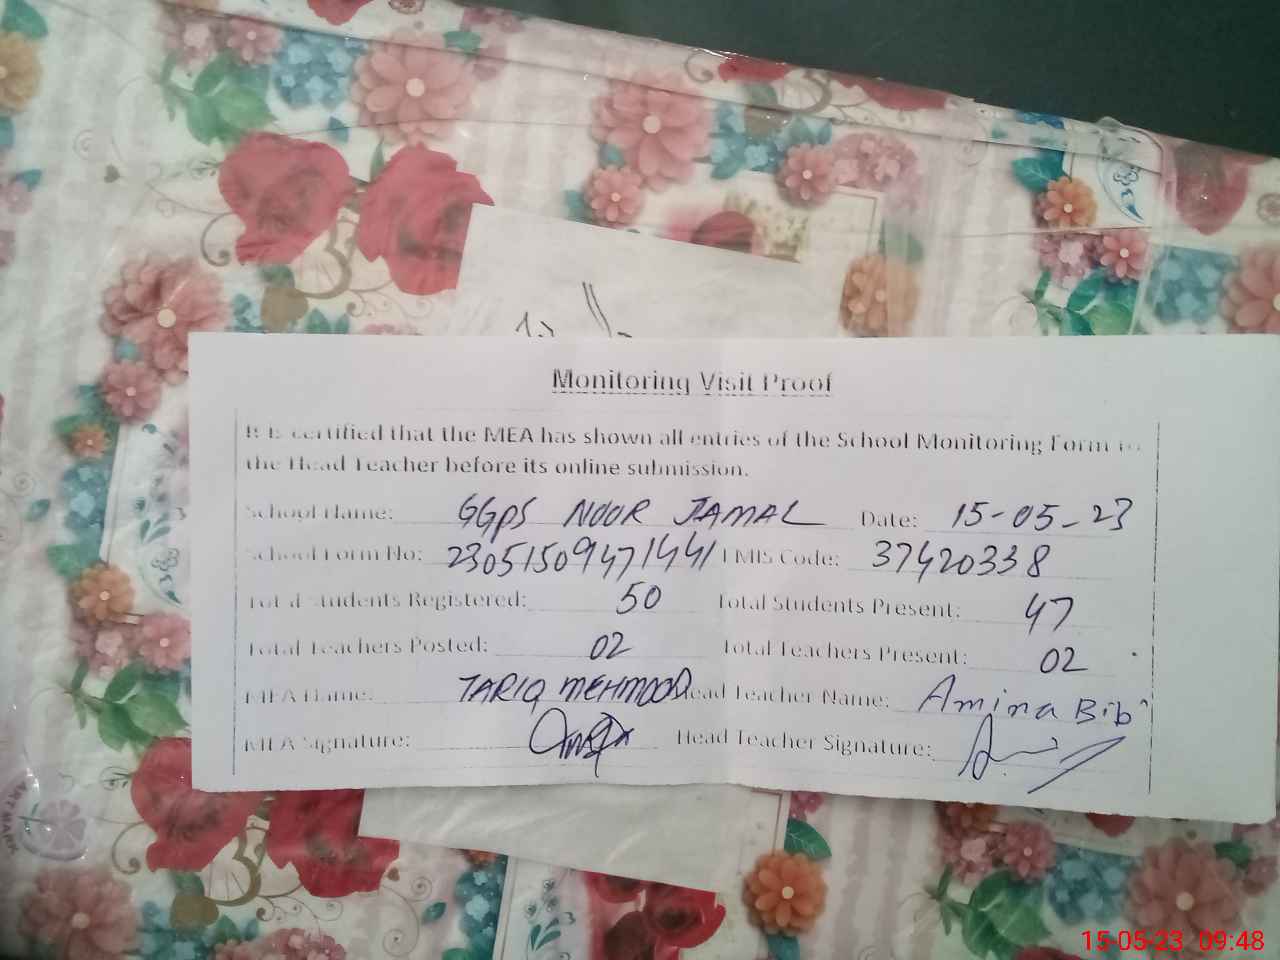 Monitoring Visit Proof
It is certified that the MEA has shown all entries of the School Monitoring Form to
the Head Teacher before its online submission.
School Name: GGPS NOOR JAMAL Date: 15-05-23
School Form No: 23051509471441 EMIS Code: 37420338
Total Students Registered: 50 Total Students Present: 47
Total Teachers Posted: 02 Total Teachers Present: 02
MEA Name: TARIQ MEHMOOD Head Teacher Name: Amina Bibi
MEA Signature: Head Teacher Signature:
15-05-23 09:48